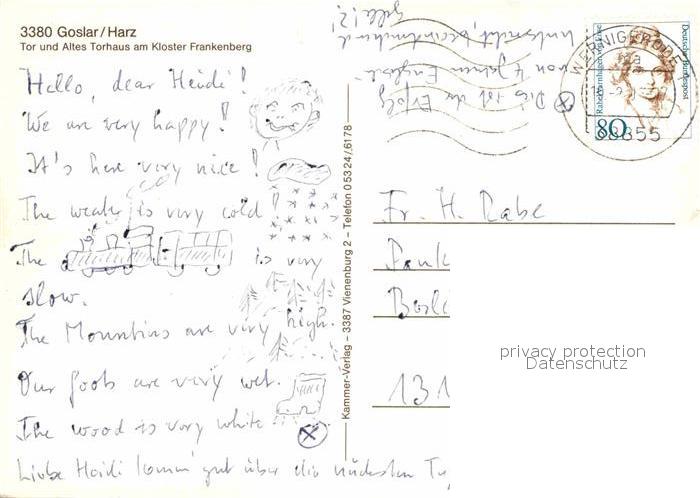 3380 Goslar/Harz
Tor und Altes Torhaus am Kloster Frankenberg
Hallo, dear Heidi!
We are very happy!
It's here very nice!
The weather is very cold!
The is very
slow.
The Mountins are very high.
Our foots are very wet.
The wood is very white
Liebe Heidi komm' gut über die nächsten
Kammer-Verlag – 3387 Vienenburg 2 – Telefon 0 53 24/ 6178
Dies ist der Erfolg
von 4 Jahren Englisch-
unterricht,
!?!
WERNIGERODE
38855
Deutsche Bundespost
80
Fr. H. Rabe
131
privacy protection
Datenschutz